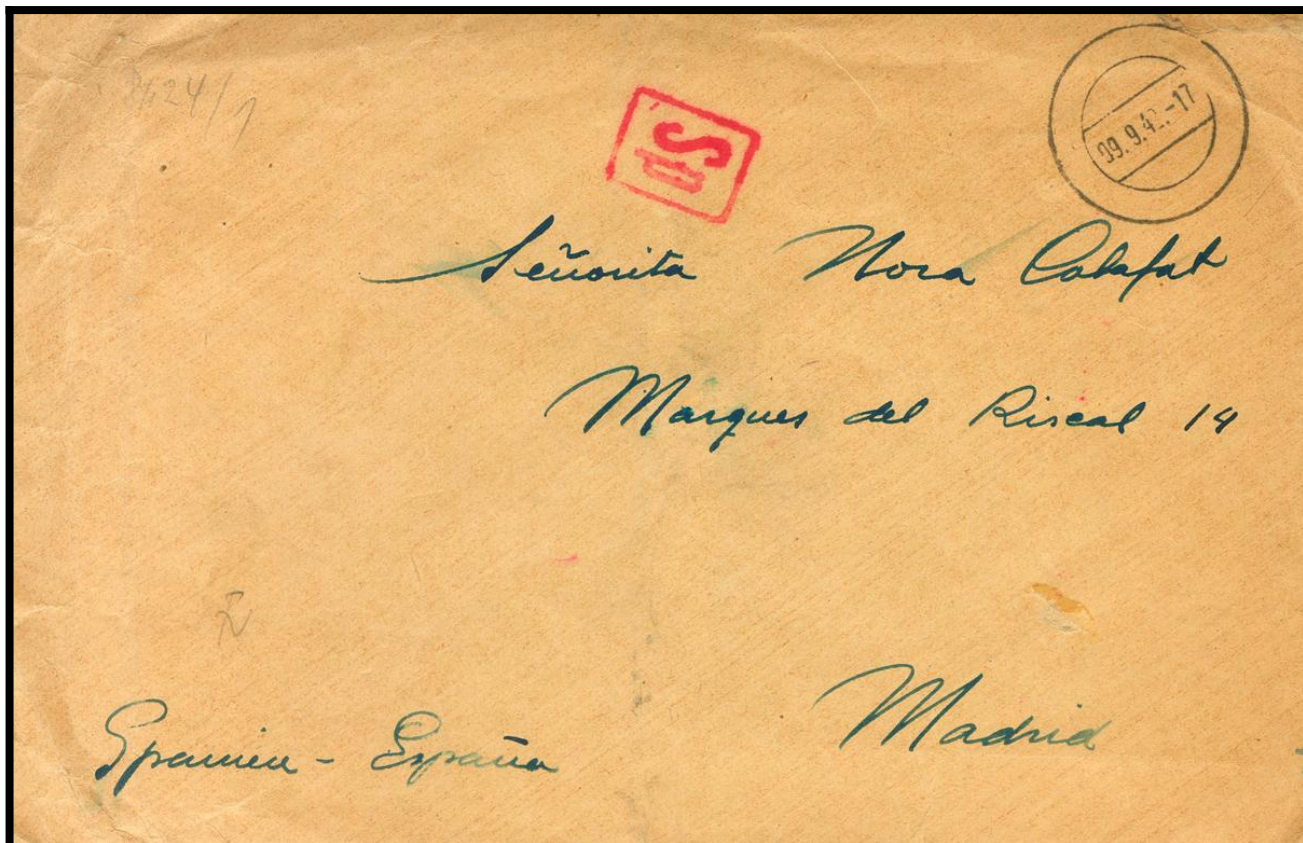 09.9.42.-17
Señorita Nora Calafat
Marques del Riscal 14
Madrid
Spanien - España